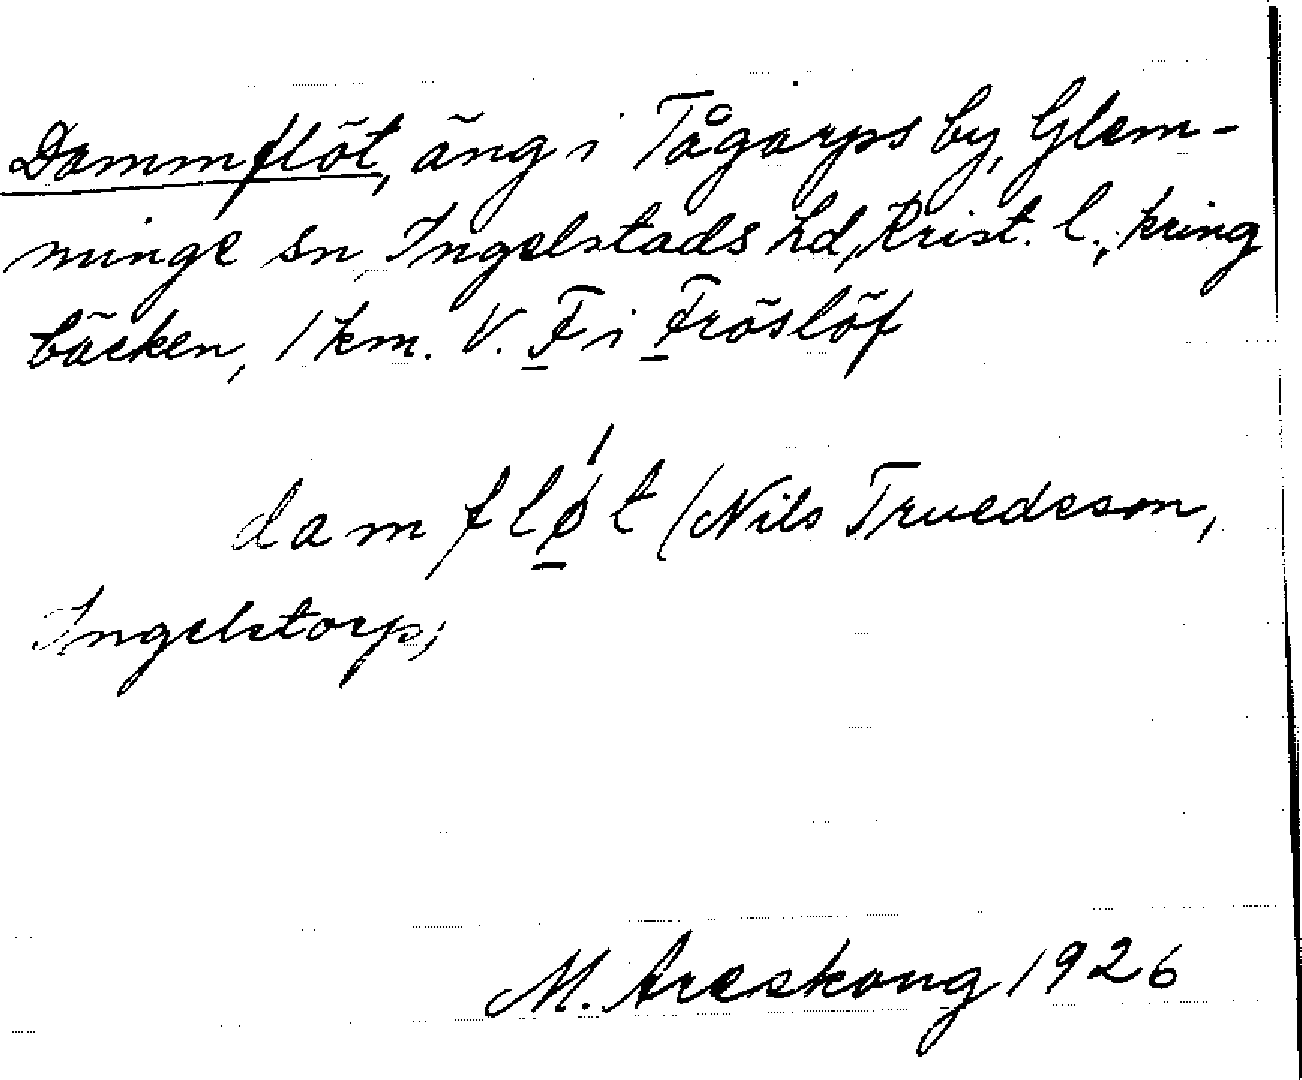 Dammflöt, äng i Tågarps by, Glem-
minge sn, Ingelstads hd, Krist. l., kring
bäcken, 1 km. V. F i Fröslöf
damfløt (Nils Truedsson,
Ingelstorp)
M. Areskoug 1926